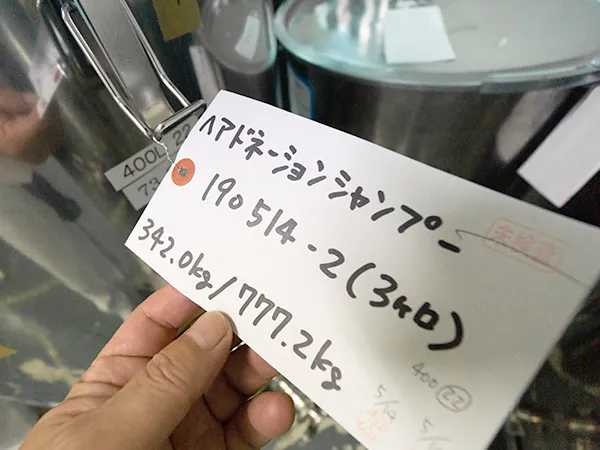 ヘアドネーションシャンプー
190514-2(3ヶロ)
342.0kg/777.2kg
400 22
5/14
400L 22